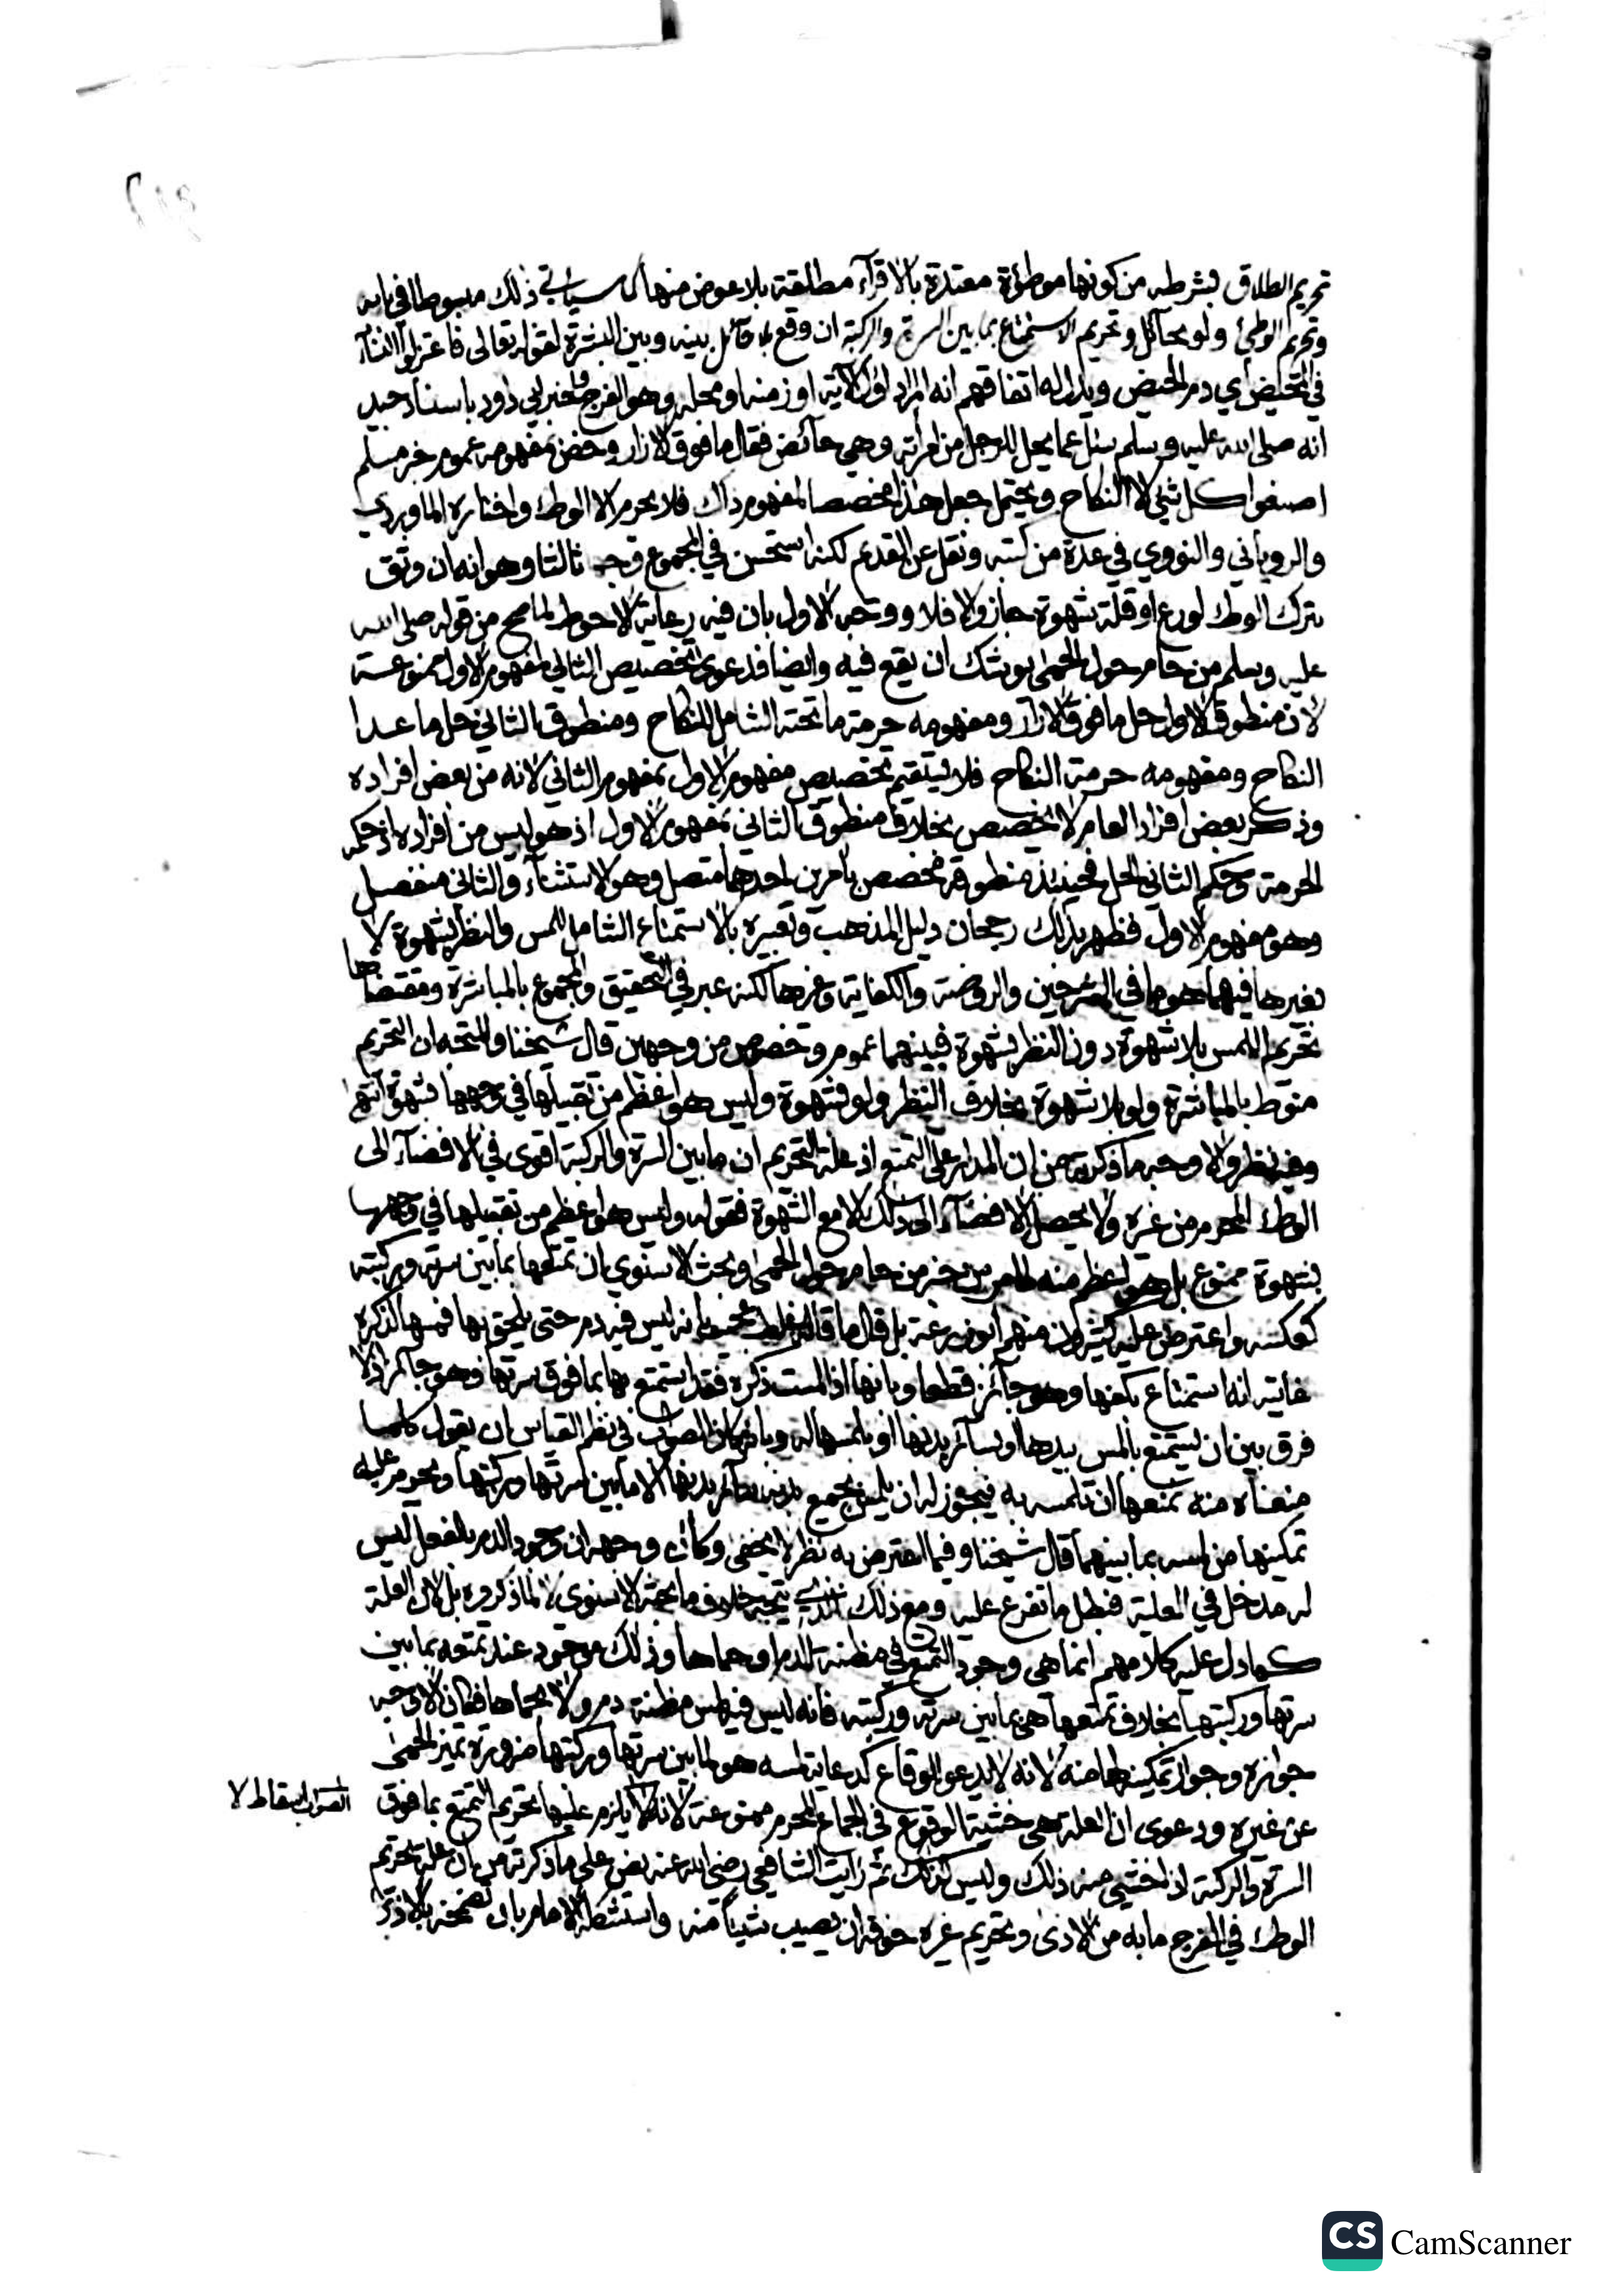 تحريم الطلاق بشرطه من كونها موطؤة معتدة بالاقرآء مطلقة بلا عوض منها كما سياتي ذلك مبسوطا في بابه
وتحريم الوطئ ولو بحآئل وتحريم الاستمتاع بما بين السرة والركبة ان وقع بلا حآئل بينه وبين البشرة لقوله تعالى فاعتزلوا النسآء
في المحيض أي دم الحيض ويدل له اتفاقهم انه المراد اول الآية او زمنه او محله وهو الفرج ولخبر ابي داود باسناد جيد
انه صلى الله عليه وسلم سئل عما يحل للرجل من امرأته وهي حآئض فقال ما فوق الازار وخص بمفهومه عموم خبر مسلم
اصنعوا كل شئ الا النكاح ويحتمل جعل هذا مخصصا لمفهوم ذاك فلا يحرم الا الوطء واختاره الماوردي
والروياني والنووي في عدة من كتبه ونقل عن القديم لكنه استحسن في المجموع وجها ثالثا وهو انه ان وثق
بترك الوطء لورع او قلة شهوة جاز والا فلا ووجه الاول بان فيه رعاية الاحوط لما صح من قوله صلى الله
عليه وسلم من حام حول الحمى يوشك ان يقع فيه وايضا فدعوى تخصيص الثاني لمفهوم الاول ممنوعة
لان منطوق الاول حل ما فوق الازار ومفهومه حرمة ما تحته الشامل للنكاح ومنطوق الثاني حل ما عدا
النكاح ومفهومه حرمة النكاح فلا يستقيم تخصيص مفهوم الاول بمفهوم الثاني لانه من بعض افراده
وذكر بعض افراد العام لا يخصص بخلاف منطوق الثاني بمفهوم الاول اذ هو ليس من افراده اذ حكمه
الحرمة وحكم الثاني الحل فحينئذ منطوقه مخصص بامرين احدهما متصل وهو الاستثنآء والثاني منفصل
وهو مفهوم الاول فظهر بذلك رجحان دليل المذهب وتعبيره بالاستمتاع الشامل للمس والنظر بشهوة لا
بغيرها فيهما هو ما في الشرحين والروضة والكفاية وغيرها لكنه عبر في التحقيق والمجموع بالمباشرة ومقتضاها
تحريم اللمس بلا شهوة دون النظر بشهوة فبينهما عموم وخصوص من وجهين قال شيخنا والمتجه ان التحريم
منوط بالمباشرة ولو بلا شهوة بخلاف النظر ولو بشهوة وليس هو اعظم من تقبيلها في وجهها بشهوة انتهى
وفيه نظر والاوجه ما ذكرته من ان المدار على التمتع اذ علة التحريم ان ما بين السرة والركبة اقوى في الافضآء الى
الوطء المحرم من غيره ولا يحصل الافضآء الى ذلك الا مع الشهوة فقوله وليس هو اعظم من تقبيلها في وجهها
بشهوة ممنوع بل هو اعظم منه لما مر من خبر من حام حول الحمى وبحث الاسنوي ان تمتعها بما بين سرته وركبته
كعكسه واعترض عليه كثيرون منهم ابوزرعة بل قال ما قاله غلط عجيب بانه ليس فيه دم حتى يلحق بها فمسها لذكره
غايته انه استمتاع بكفها وهو جآئز قطعا وبانها اذا لمست ذكره فقد استمتع بها بما فوق سرتها وهو جآئز اذ لا
فرق بين ان يستمتع بالمس بيدها او بسآئر بدنها او بلمسها له وبانه كان الصواب في نظم القياس ان نقول كلما
منعناه منه نمنعها ان تلمسه به فيجوز له ان يلمس بجميع بدنه سآئر بدنها الا ما بين سرتها وركبتها ويحرم عليه
تمكينها من لمسه بما بينهما قال شيخنا وفيما اعترض به نظر لا يخفى وكان وجهه ان وجود الدم بالفعل ليس
له مدخل في العلة فبطل ما تفرع عليه ومع ذلك يتجه خلاف ما بحثه الاسنوي لا لما ذكروه بل لان العلة
كما دل عليه كلامهم انما هي وجود التمتع في مظنة الدم او حماها وذلك موجود عند تمتعه بما بين
سرتها وركبتها بخلاف تمتعها هي بما بين سرته وركبته فانه ليس فيه مس مظنة دم ولا لحماها فكان الاوجه
جوازه وجواز تمكينها منه لانه لا يدعو للوقاع كدعاية لمسه هو لما بين سرتها وركبتها ضرورة تميز الحمى
عن غيره ودعوى ان العلة هي خشية الوقوع في الجماع المحرم ممنوعة لانه لا يلزم عليها تحريم التمتع بما فوق
الصواب اسقاط لا
السرة والركبة اذا خشي منه ذلك وليس كذلك ثم رايت الشافعي رضي الله عنه نص على ما ذكرته من ان علة تحريم
الوطء في الفرج ما به من الاذى وتحريم غيره خوف ان يصيب شيئا منه واستشكله الامام بان تضمخه بالاذى